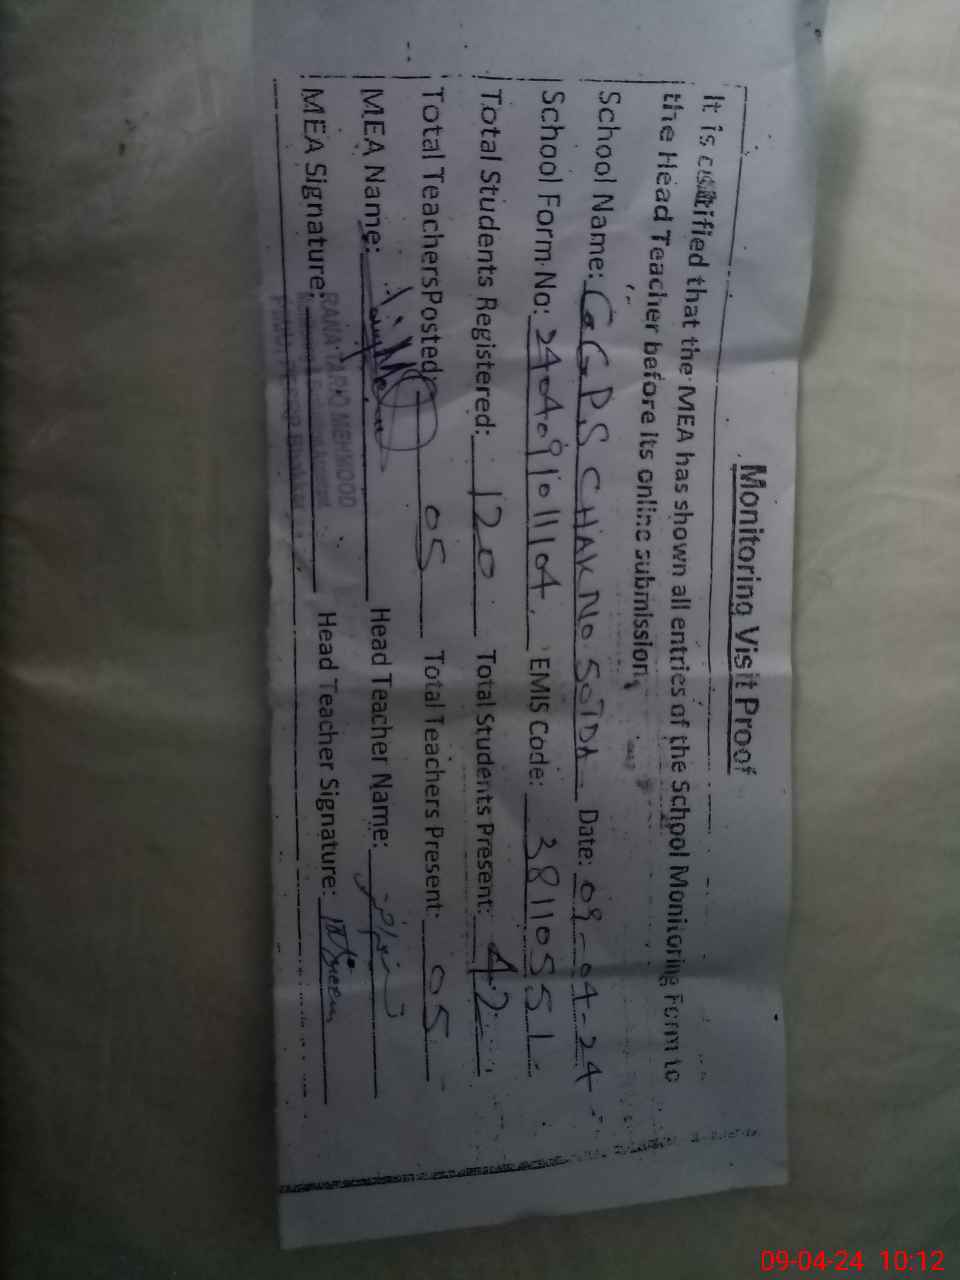 Monitoring Visit Proof
It is certified that the MEA has shown all entries of the School Monitoring Form to
the Head Teacher before its online submission.
School Name: GGPS CHAK NO 50TDA Date: 09-04-24
School Form No: 2404091011104 EMIS Code: 38110551
Total Students Registered: 120 Total Students Present: 42
Total Teachers Posted: 05 Total Teachers Present: 05
MEA Name: Head Teacher Name:
MEA Signature: Head Teacher Signature:
RANA TARIQ MEHMOOD
09-04-24 10:12